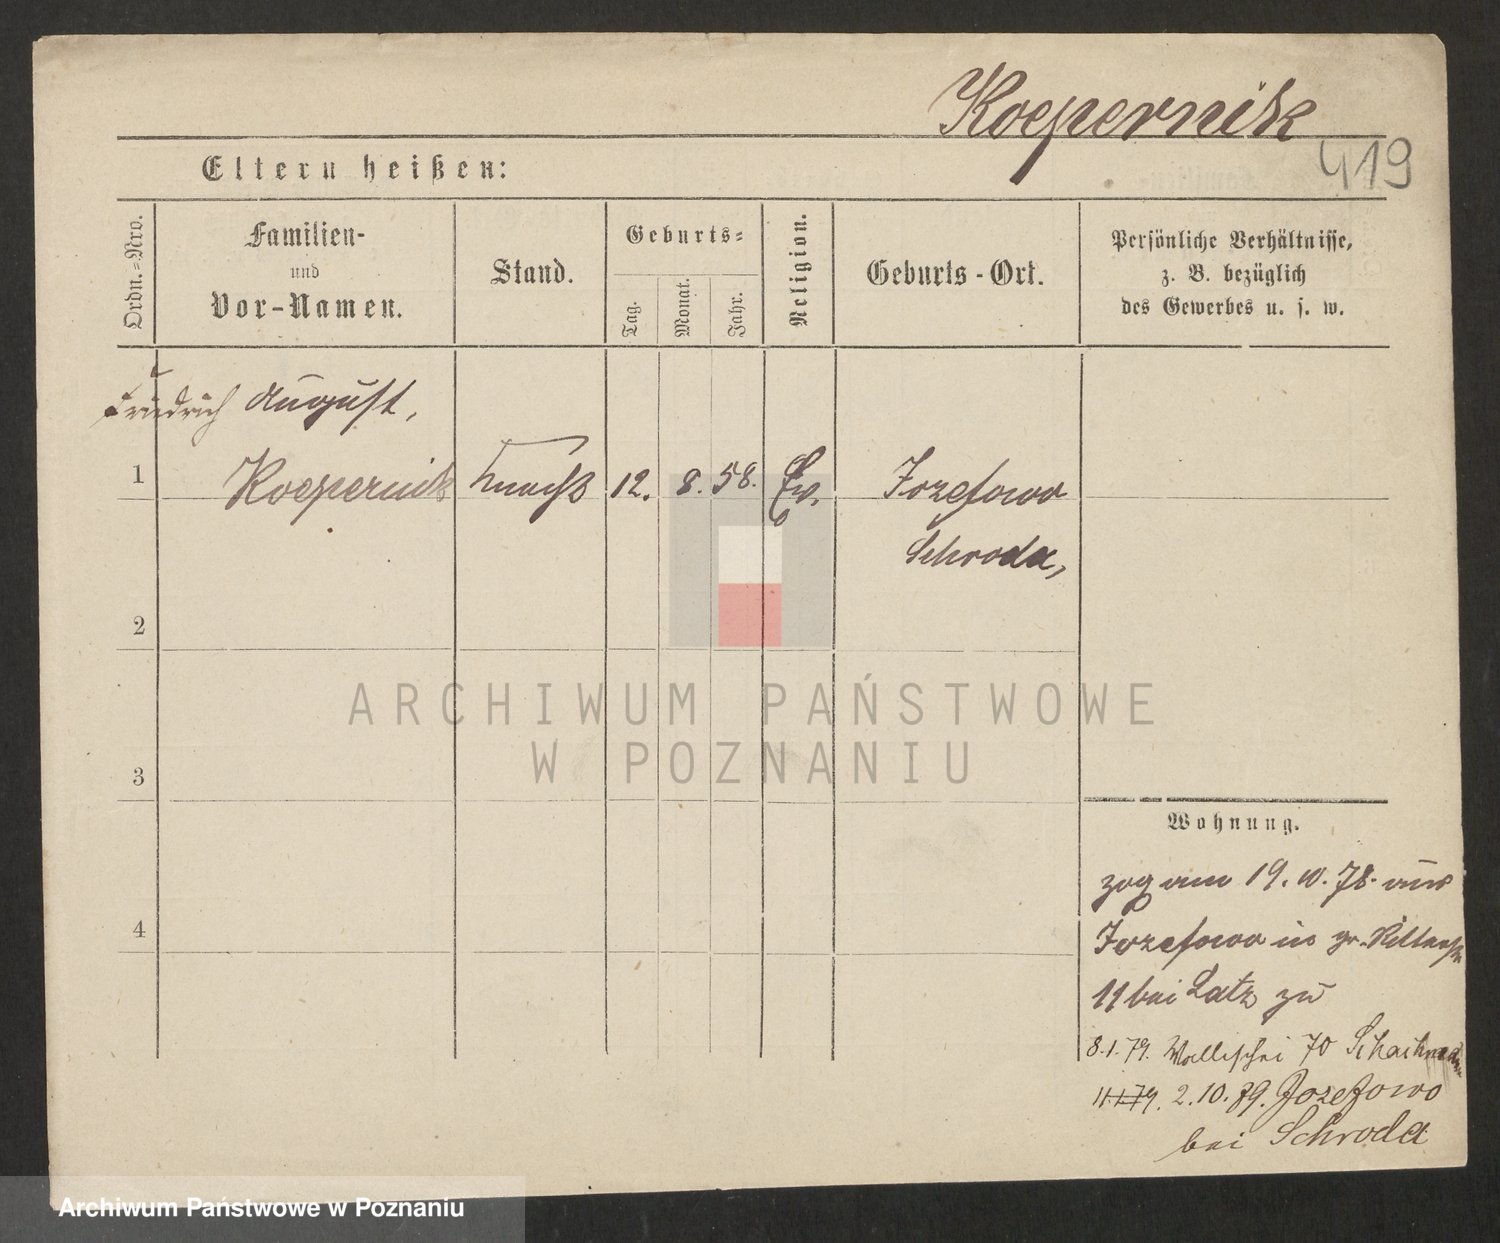 Koepernik
419
Eltern heißen:
Ordn.=Nro.
Familien-
und
Vor-Namen.
Stand.
Geburts=
Tag.
Monat.
Jahr.
Religion.
Geburts-Ort.
Persönliche Verhältnisse,
z. B. bezüglich
des Gewerbes u. s. w.
Friedrich August,
1 Koepernik Knecht 12. 8. 58. Ev. Jozefowo
Schroda,
2
3
4
ARCHIWUM PAŃSTWOWE
W POZNANIU
Wohnung.
zog am 19. 10. 78. aus
Jozefowo in gr. Ritterstr
11 bei Latz zu
8.1.79. Wallischei 70
11.1.79. 2.10.79. Jozefowo
bei Schroda
Archiwum Państwowe w Poznaniu